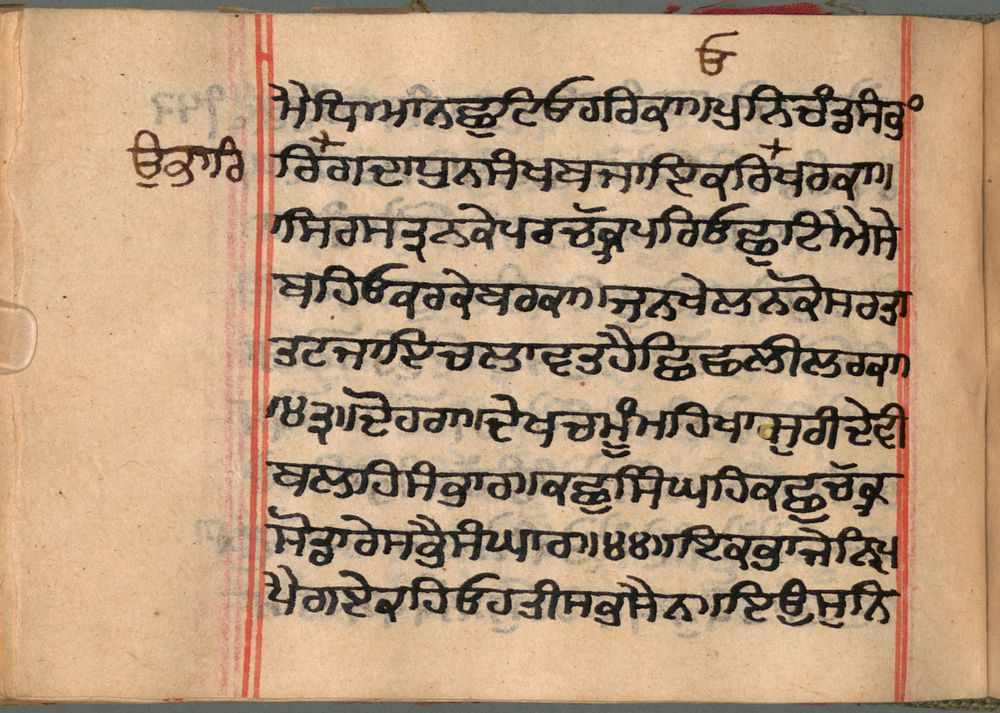 ਓ
ਮੈਧਿਆਨਛੁਟਿਓਹਰਿਕਾ॥ਪੁਨਿਚੰਡਸੰਭੁੰ
ਉਭਾਰਿ ਰਿੰਗਦਾਧੁਨਸੰਖਬਜਾਇਕਰਿਖਰਕਾ॥
ਸਿਰਸਤ੍ਰਨਕੇਪਰਚੱਕ੍ਰਪਰਿਓਛੁਟਿਐਸੇ
ਬਹਿਓਕਰਕੇਬਰਕਾ॥ਜਨੁਖੇਲਨਕੋਸਰਤਾ
ਤਟਜਾਇਚਲਾਵਤਹੈਛਿਛਲੀਲਰਕਾ॥
੪੩॥ਦੋਹਰਾ॥ਦੇਖਚਮੂੰਮਹਿਖਾਸੁਰੀਦੇਵੀ
ਬਲਹਿਸੰਭਾਰ॥ਕਛੁਸਿੰਘਹਿਕਛੁਚੱਕ੍ਰ
ਸੋਡਾਰੇਸਭੈਸੰਘਾਰ॥੪੪॥ਇਕਭਾਜੇਨ੍ਰਿਪ
ਪੈਗਏਕਹਿਓਹਤੀਸਭਸੈਨ॥ਇਉਸੁਨਿ